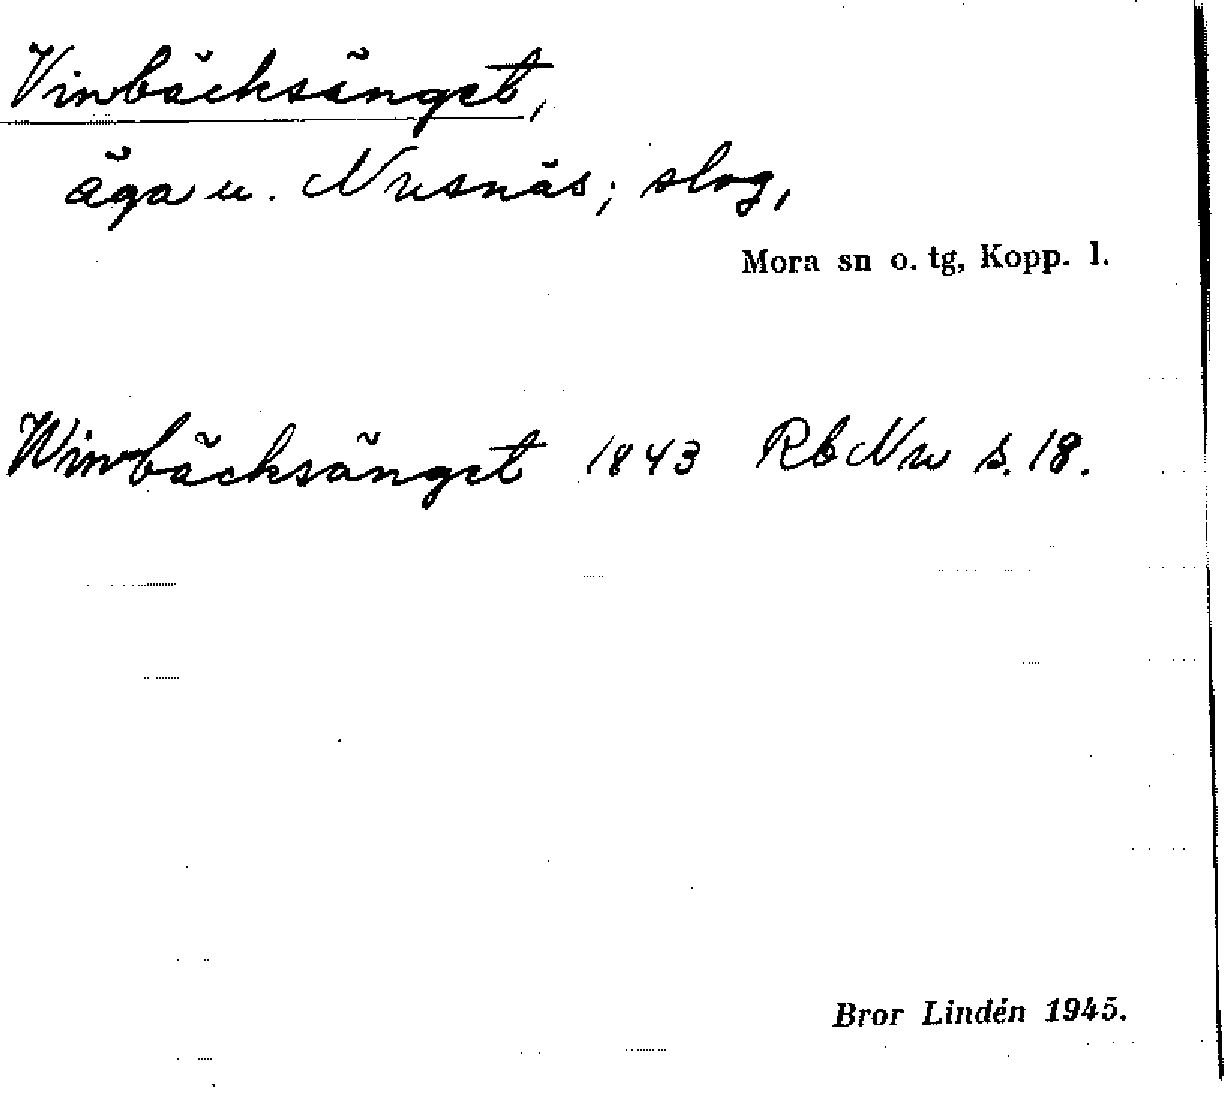 Vinbäcksänget,
äga u. Nusnäs; slog,
Mora sn o. tg, Kopp. l.
Winbäcksänget 1843 Rb Nu s. 18.
Bror Lindén 1945.